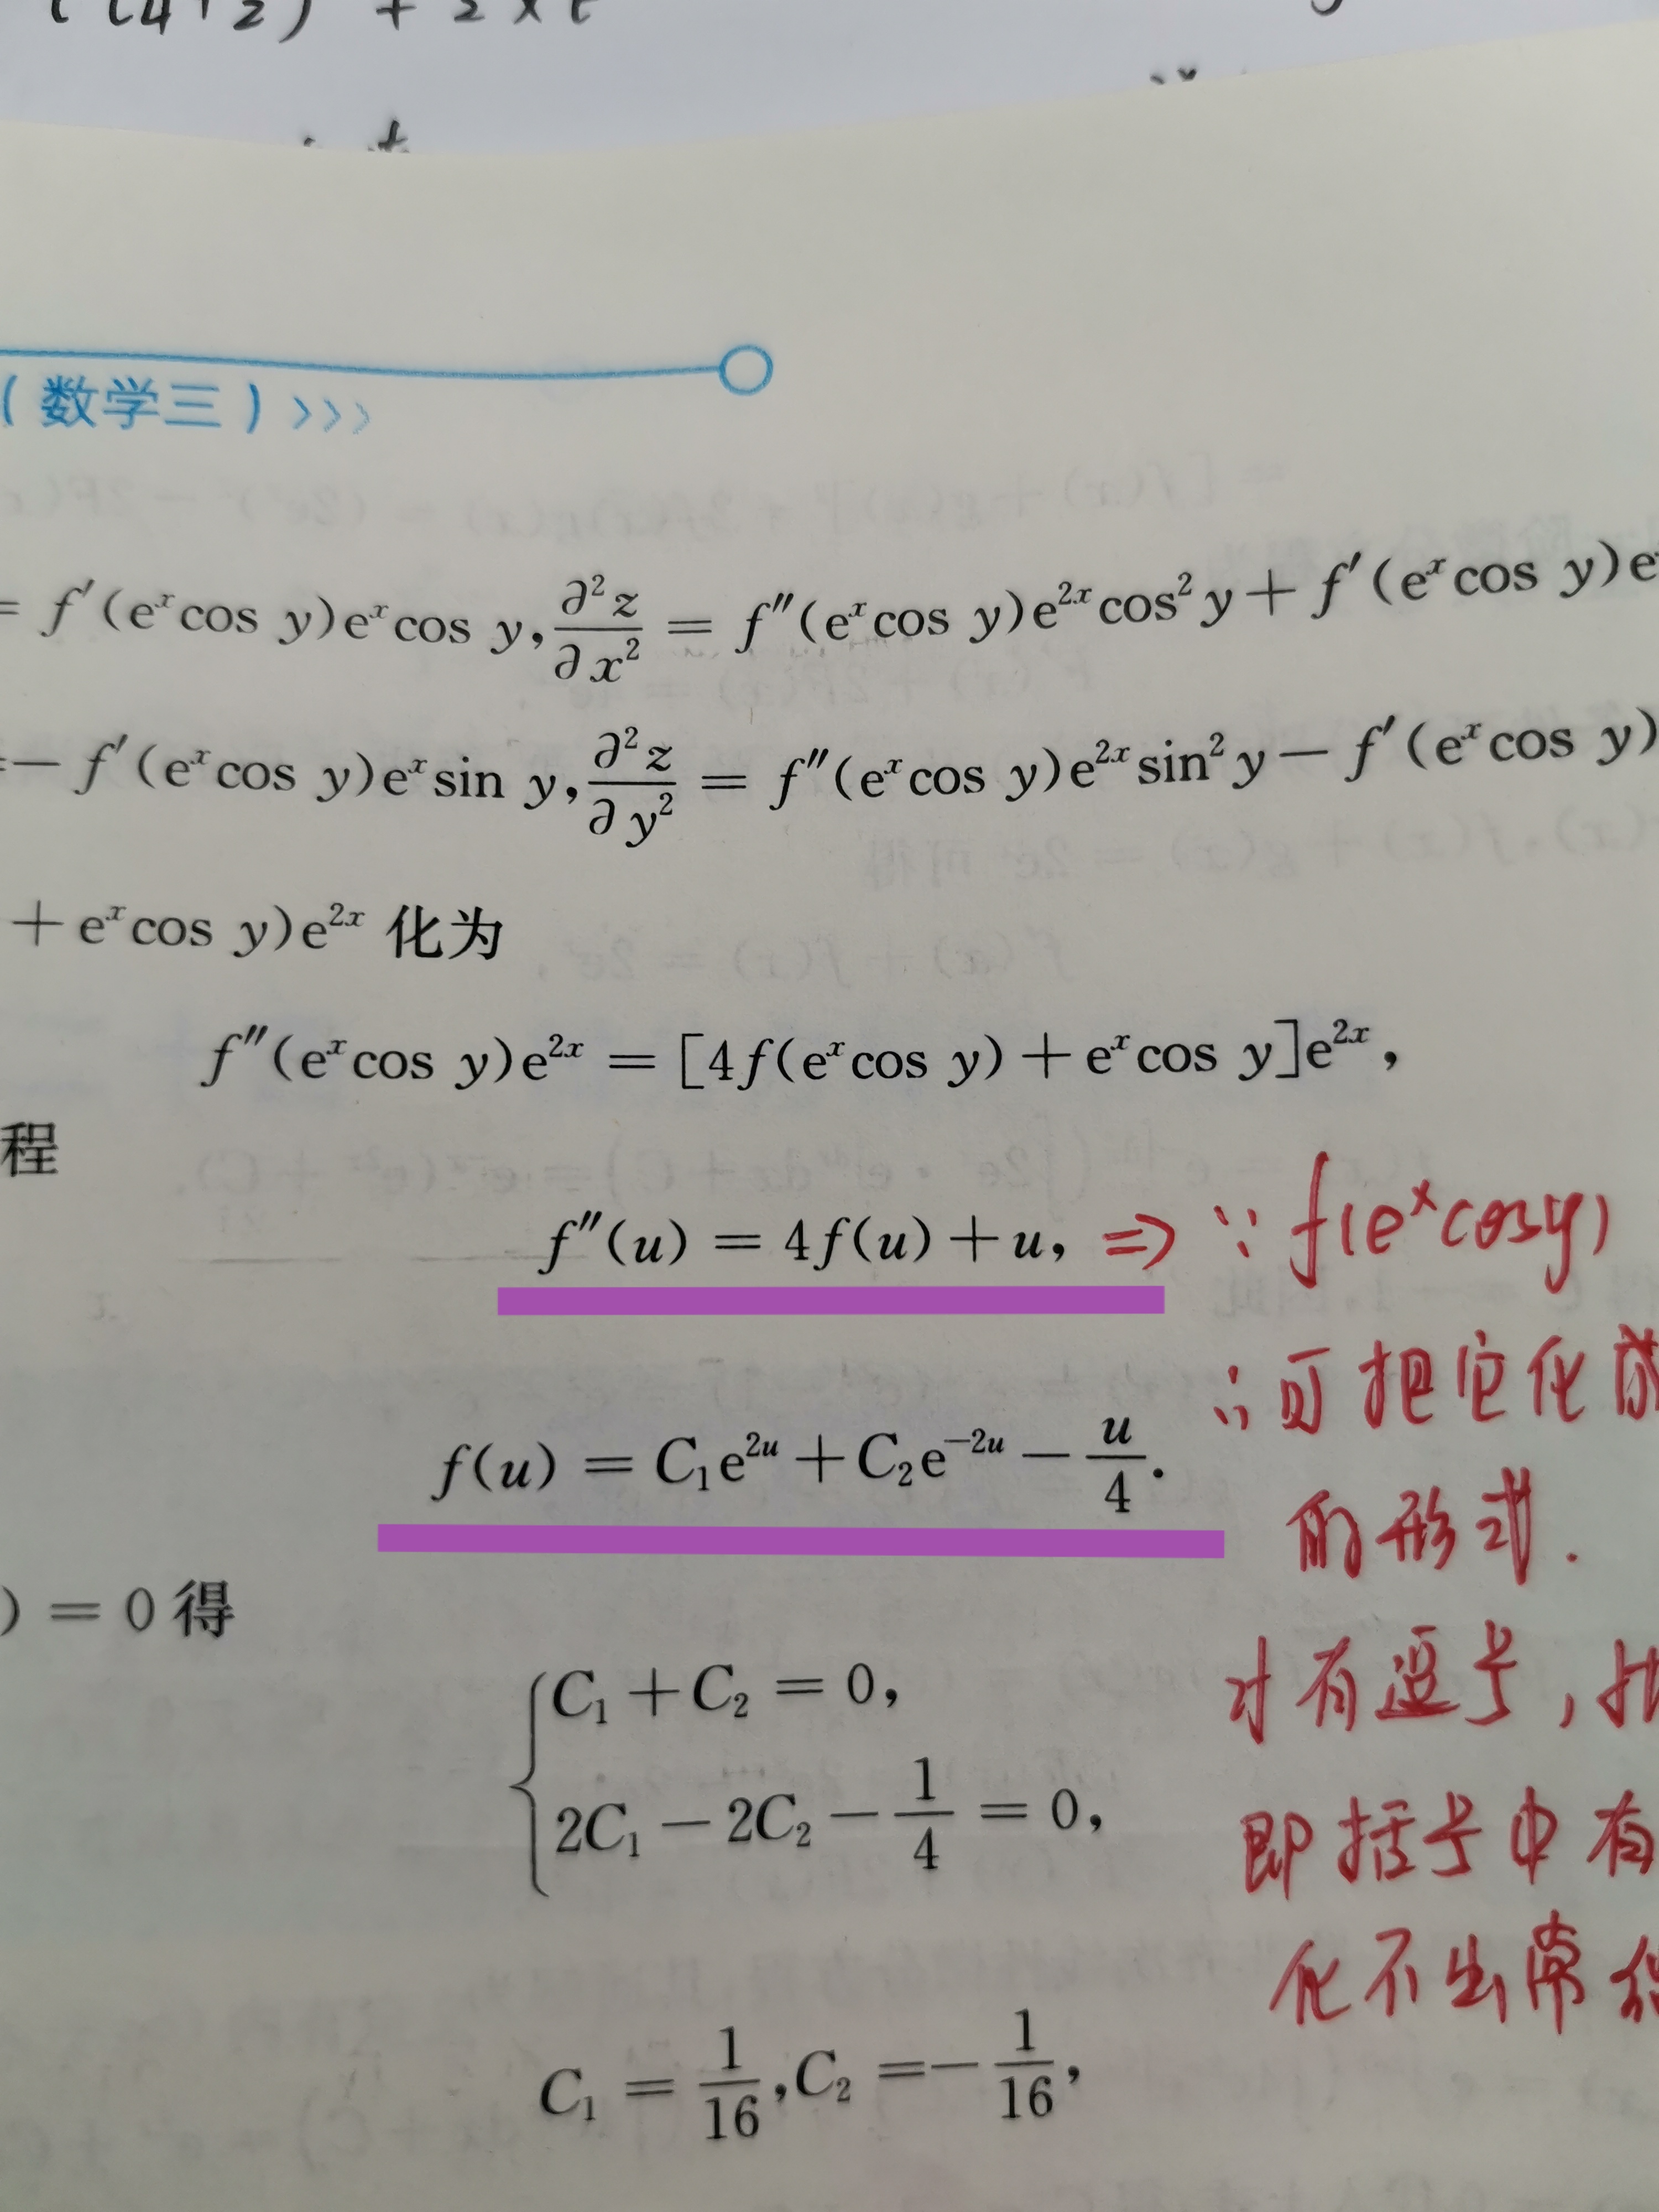 (数学三)>>>
= f′(eˣcos y)eˣcos y, ∂²z/∂x² = f″(eˣcos y)e²ˣcos²y + f′(eˣcos y)e
= − f′(eˣcos y)eˣsin y, ∂²z/∂y² = f″(eˣcos y)e²ˣsin²y − f′(eˣcos y)
+ eˣcos y)e²ˣ 化为
f″(eˣcos y)e²ˣ = [4f(eˣcos y) + eˣcos y]e²ˣ,
程
f″(u) = 4f(u) + u, ⇒ ∵ f(eˣcosy)
∴可把它化成
f(u) = C₁e²ᵘ + C₂e⁻²ᵘ − u/4.
的形式.
) = 0 得
对有逗号,
C₁ + C₂ = 0,
2C₁ − 2C₂ − 1/4 = 0,
即括号中有
化不出常
C₁ = 1/16, C₂ = − 1/16,